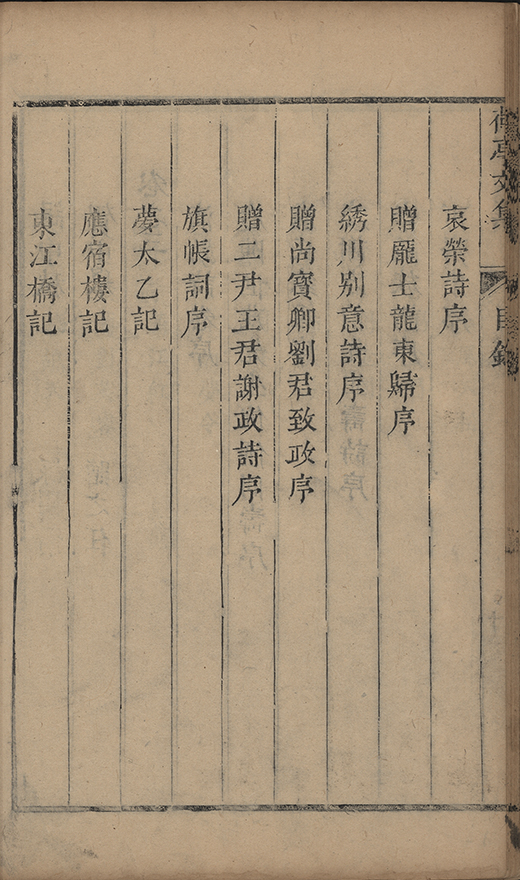 亭文集
目錄
哀榮詩序
贈龐士龍東歸序
綉川别意詩序
贈尚寶卿劉君致政序
贈二尹王君謝政詩序
旗帳詞序
夢太乙記
應宿樓記
東江橋記